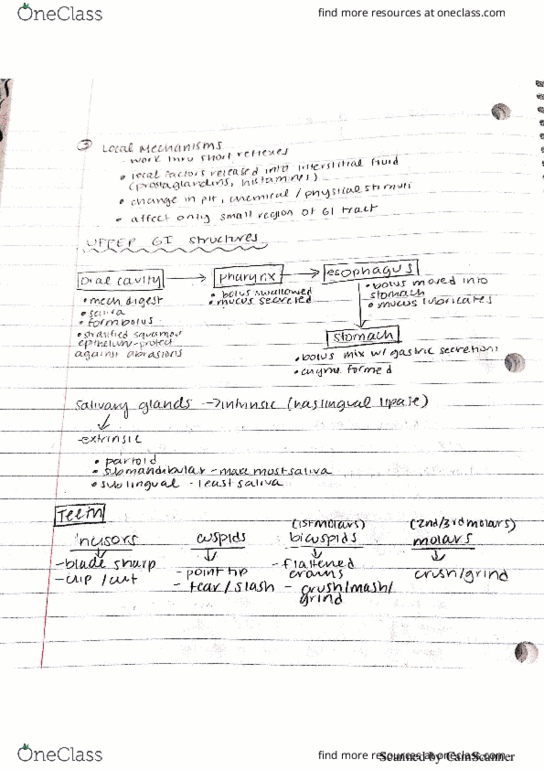 OneClass
find more resources at oneclass.com
③ Local Mechanisms
- work thru short reflexes
• local factors released into interstitial fluid
(prostaglandins, histamines)
• change in pH, chemical / physical stimuli
• affect only small region of GI tract
UPPER GI structures
Oral cavity → pharynx → esophagus
• mech digest
• saliva
• form bolus
• stratified squamous
epithelium-protect
against abrasions
• bolus swallowed
• mucus secreted
• bolus moved into
stomach
• mucus lubricates
stomach
• bolus mix w/ gastric secretions
• chyme formed
salivary glands → intrinsic (has lingual lipase)
extrinsic
• parotid
• submandibular - make most saliva
• sublingual - least saliva
Teeth
incisors
- blade sharp
- clip / cut
cuspids
- point tip
- tear / slash
(1st molars)
bicuspids
- flattened
crowns
- crush/mash/
grind
(2nd/3rd molars)
molars
crush/grind
OneClass
find more resources at oneclass.com
Scanned by CamScanner